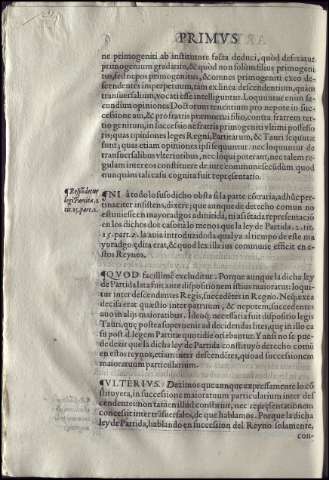 PRIMVS
ne primogeniti ab instituente facta deduci, quòd defuncto
primogenium gradatim, & quòd non solùm filius primogeni
tus, sed nepos primogenitus, & omnes primogeniti ex eo des-
cendentes in perpetuum, tam ex linea descendentium, quàm
transuersalium, vocati esse intelliguntur. Loquuntur enim se-
cundùm opiniones Doctorum tenentium pro nepote in suc-
cessione auti, & pro fratris præmortui filio, contra fratrem ter-
tiogenitum, in successione fratris primogeniti vltimi possesso-
ris: quas opiniones leges Regni, Partitarum, & Tauri sequutæ
sunt: quas etiam opiniones ipsi sequuntur. nec loquuntur de
transuersalibus vlterioribus, nec loqui poterant, nec talem re-
gulam inter eos constituere de iure communi secundùm quod
nunquàm tali casu cognita fuit repræsentatio.
¶ Respōdetur
legi Partitæ. 2.
tit. 15. part. 2.
¶NI à todo lo susodicho obsta si la parte contraria, adhuc per-
tinaciter insistens, dixere; que aunque de derecho comun no
estuuiesse en mayoradgos admitida, ni assentada representació
en los dichos dos casos: alo menos que la ley de Partida. 2. tit.
15. part. 2. la auia introduzido: la qual ya al tiempo de este ma
yoradgo, edita erat, & quod lex illa ius commune efficit en es-
tos Reynos.
¶QVOD facillimè excluditur. Porque aunque la dicha ley
de Partida lata fuit ante dispositionem istius maioratus: loqui-
tur inter descendentes Regis, succedentes in Regno. Nec ex ea
decisa erat quæstio inter patruum, & nepotem, succedentes
auo in alijs maioratibus. Ideoq; necessaria fuit dispositio legis
Tauri, quæ postea superuenit ad decidendas lites, que in illo ca
su post d. legem Partitæ quotidie oriabantur. Y ansi no se pue-
de dezir que la dicha ley de Partida constituyò derecho comū
en estos reynos, etiam inter descendentes, quoad successionem
maioratuum particularium.
¶VLTERIVS. Dezimos que aunque expressamente lo cō
stituyera, in successione maioratuum particularium inter des
cendentes: non tamen illud constituit, nec repræsentationem
concessit inter trāsuersales, de que hablamos. Porque la dicha
ley de Partida, hablando en succession del Reyno solamente,
con-